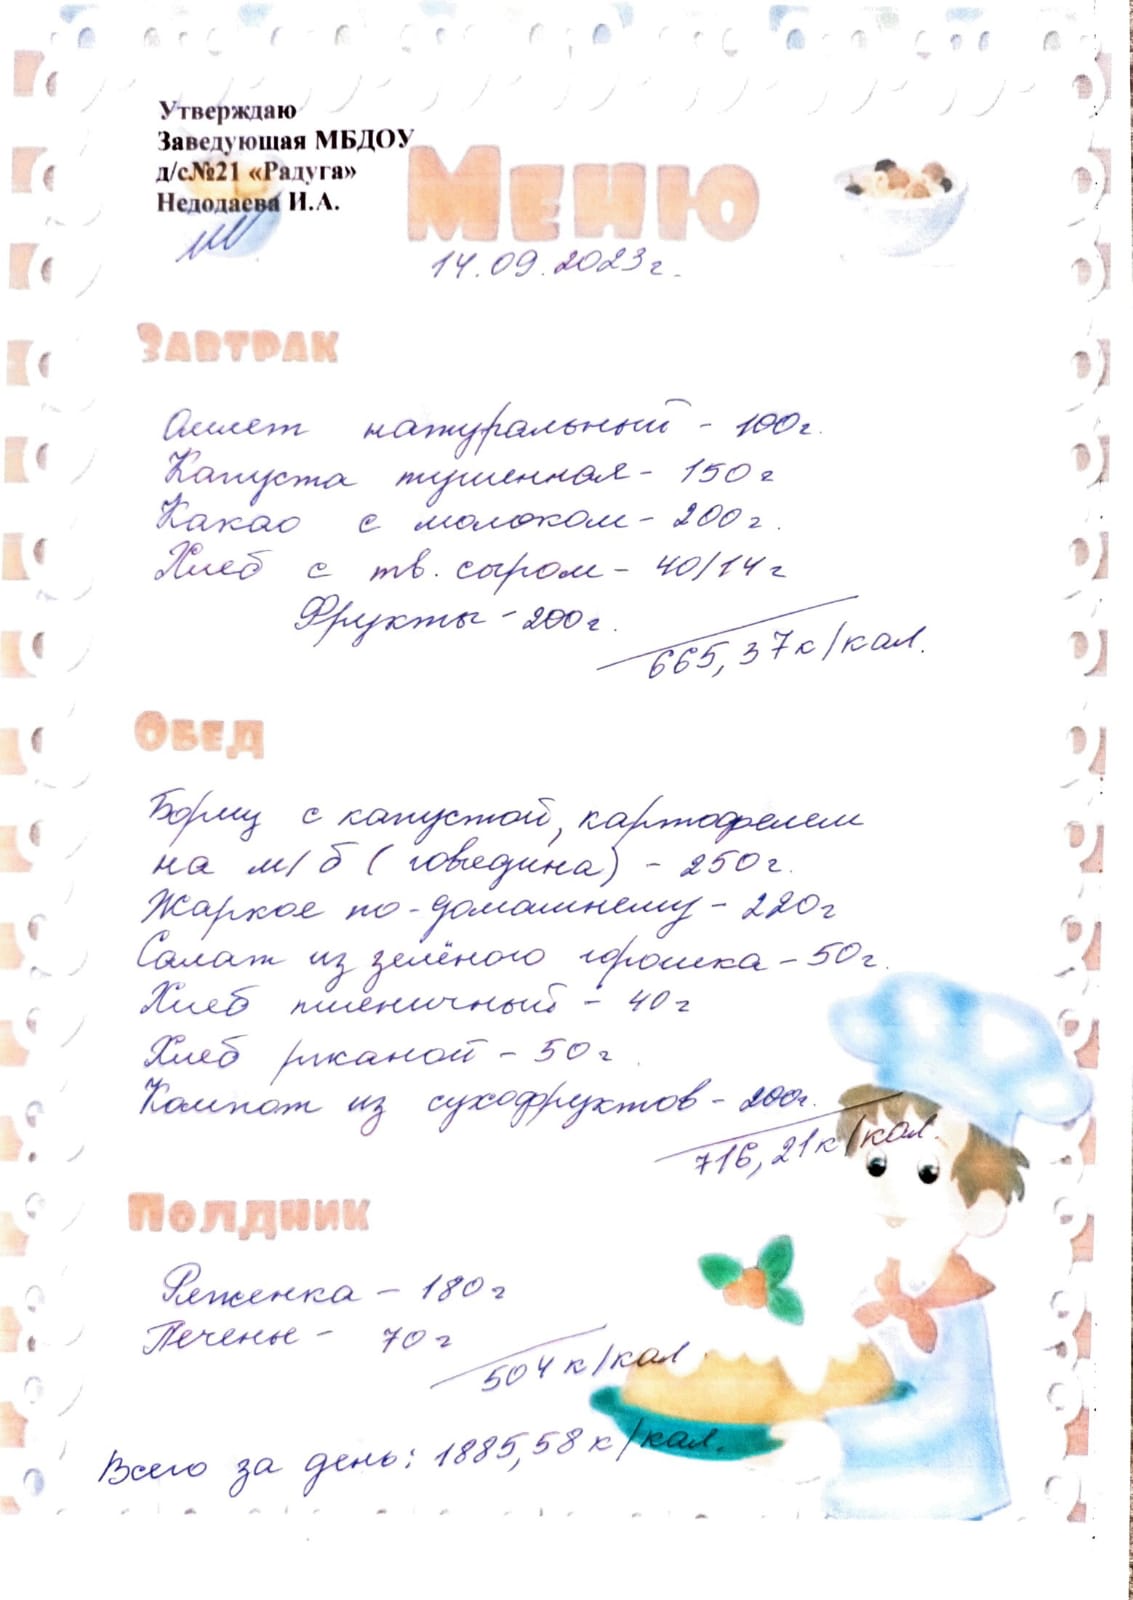 Утверждаю
Заведующая МБДОУ
д/с№21 «Радуга»
Недодаева И.А.
Меню
14.09.2023г.
Завтрак
Омлет натуральный - 100г.
Капуста тушенная - 150г
Какао с молоком - 200г.
Хлеб с тв. сыром - 40/14г
Фрукты - 200г.
665,37к/кал.
Обед
Борщ с капустой, картофелем
на м/б (говядина) - 250г.
Жаркое по-домашнему - 220г
Салат из зелёного горошка - 50г.
Хлеб пшеничный - 40г
Хлеб ржаной - 50г.
Компот из сухофруктов - 200г.
716,21к/кал.
Полдник
Ряженка - 180г
Печенье - 70г
504к/кал.
Всего за день: 1885,58к/кал.